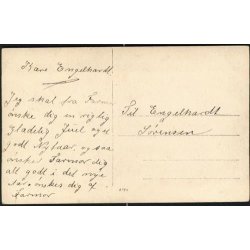 Kære Engelhardt.
Jeg skal fra Farmor
ønske dig en rigtig
glædelig Juel og et
godt Nytaar, og saa
ønsker Farmor dig
alt godt i det nye
Aar ønskes dig af
Farmor
Til Engelhardt
Sørensen